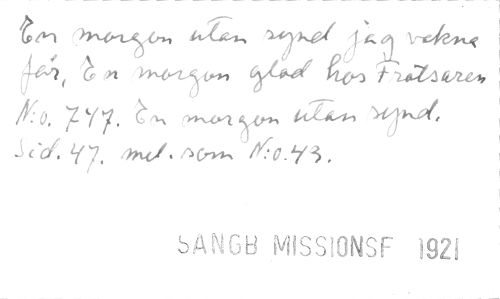 En morgon utan synd jag vakna
får, En morgon glad hos Fralsaren
N:o. 747. En morgon utan synd.
Sid. 47. mel. som N:o. 43.
SANGB MISSIONSF 1921